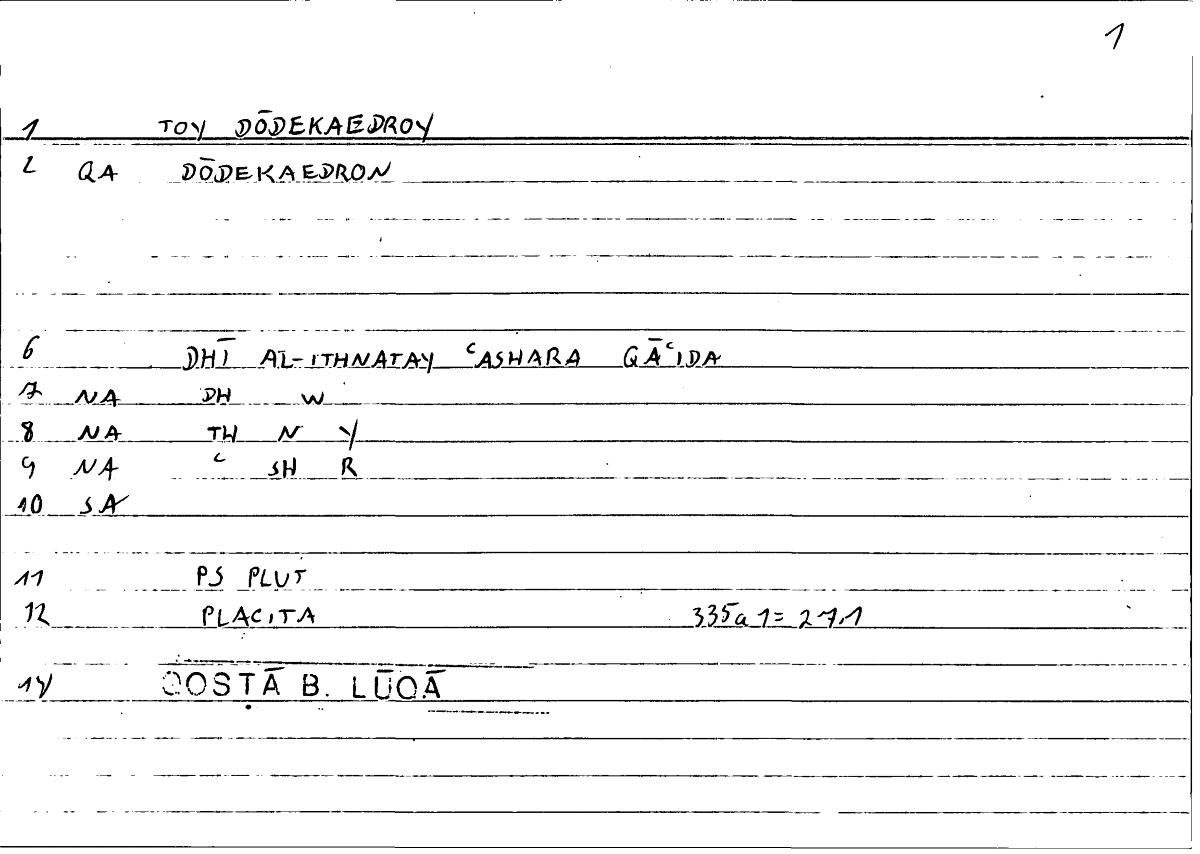 1
1 TOY DŌDEKAEDROY
2 QA DŌDEKAEDRON
6 DHĪ AL-ITHNATAY ʿASHARA QĀʿIDA
7 NA DH W
8 NA TH N Y
9 NA ʿ SH R
10 SA
11 PS PLUT
12 PLACITA 335a1=27,1
14 QOSṬĀ B. LŪQĀ